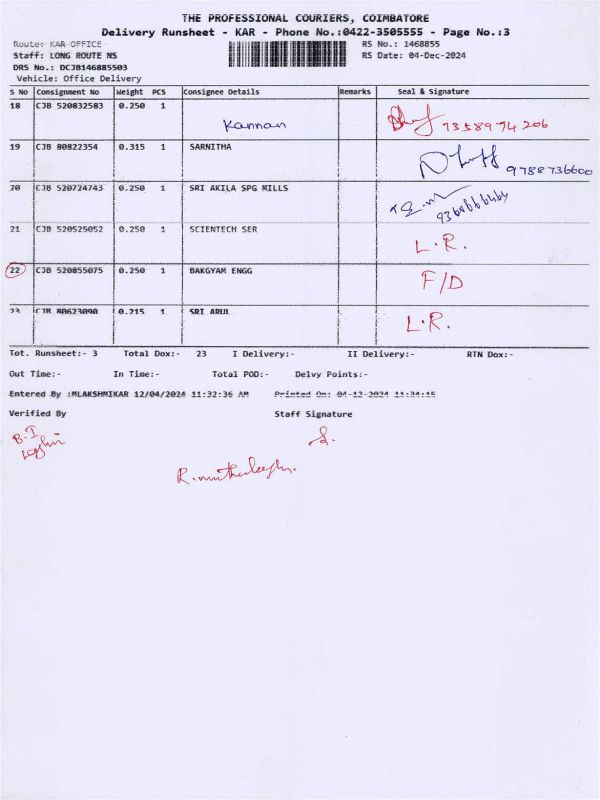 THE PROFESSIONAL COURIERS, COIMBATORE
Delivery Runsheet - KAR - Phone No.:0422-3505555 - Page No.:3
Route: KAR OFFICE RS No.: 1468855
Staff: LONG ROUTE NS RS Date: 04-Dec-2024
DRS No.: DCJB146885503
Vehicle: Office Delivery
S No Consignment No Weight PCS Consignee Details Remarks Seal & Signature
18 CJB 520832583 0.250 1 Kannan 7358974206
19 CJB 80822354 0.315 1 SARNITHA 9788736600
20 CJB 520724743 0.250 1 SRI AKILA SPG MILLS
21 CJB 520525052 0.250 1 SCIENTECH SER L.R.
22 CJB 520855075 0.250 1 BAKGYAM ENGG F/D
23 CJB 80623090 0.215 1 SRI ARUL L.R.
Tot. Runsheet:- 3 Total Dox:- 23 I Delivery:- II Delivery:- RTN Dox:-
Out Time:- In Time:- Total POD:- Delvy Points:-
Entered By :MLAKSHMIKAR 12/04/2024 11:32:36 AM Printed On: 04-12-2024 11:34:15
Verified By Staff Signature